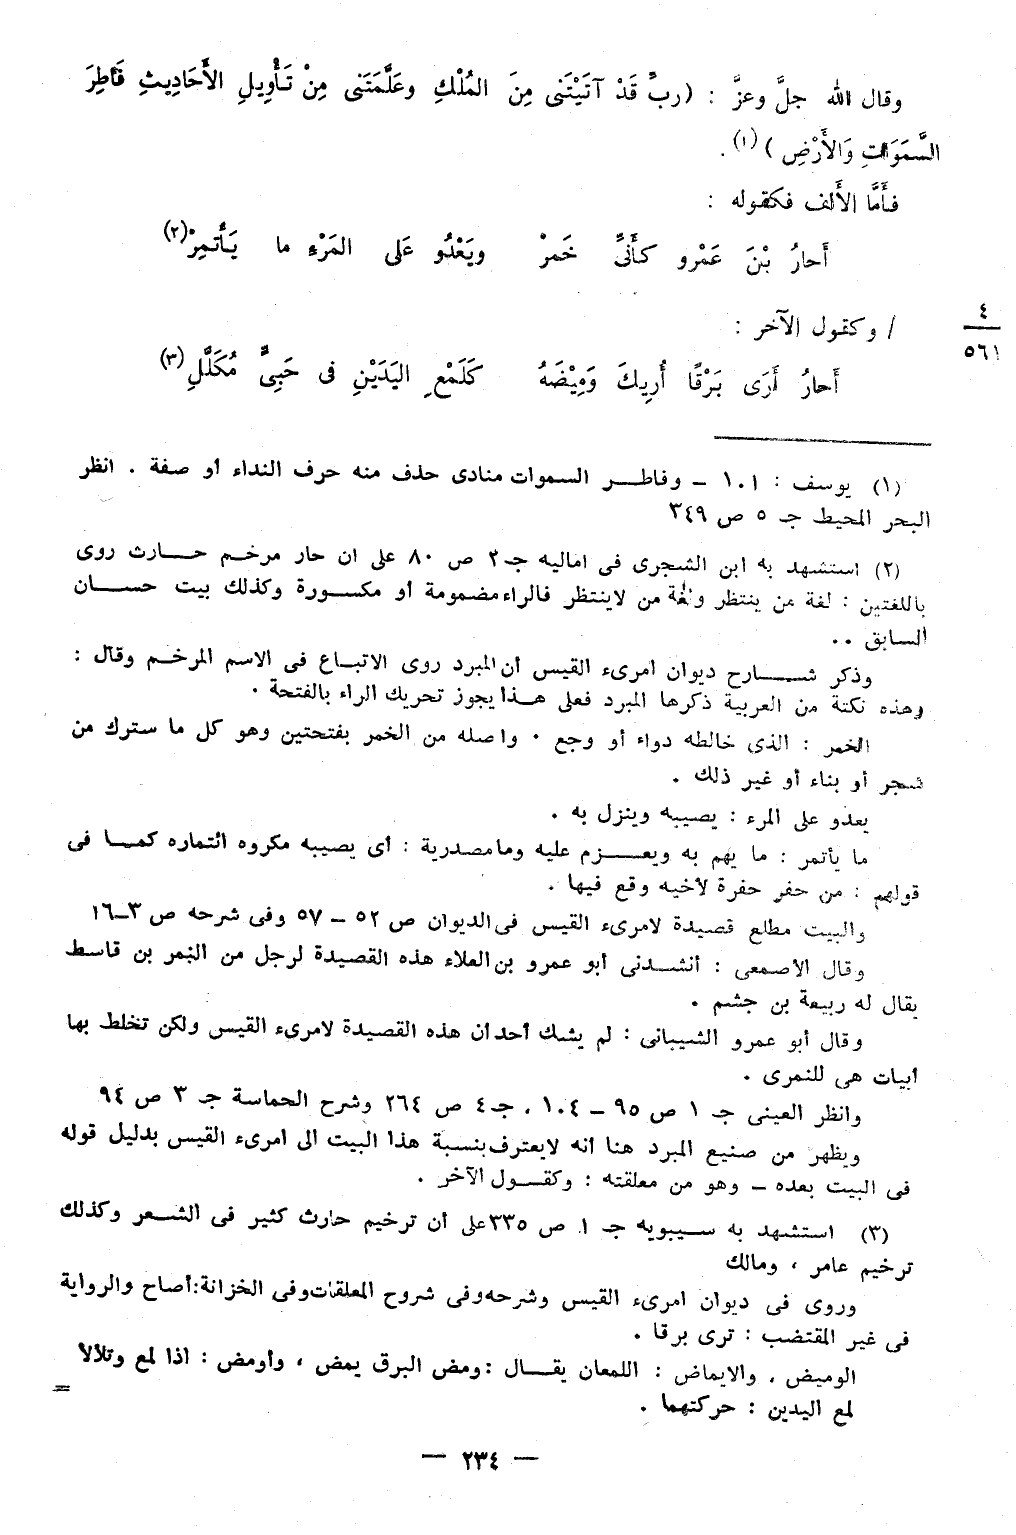 وقال الله جلَّ وعزَّ : ( ربِّ قَدْ آتَيْتَنى مِنَ المُلْكِ وعَلَّمَتَنى مِنْ تَأْوِيلِ الأَحَادِيثِ فَاطِرَ
السَّمَوَاتِ وَالأَرْضِ ) (١) .
فأَمَّا الأَلف فكقوله :
أَحارُ بْنَ عَمْرو كأَنِّى خَمرْ ويَعْدُو عَلى المَرْءِ ما يَأْتمِرْ (٢)
٤
٥٦١
/ وكقول الآخر :
أَحارُ أَرَى بَرْقًا أُرِيكَ وَمِيْضَهُ كَلَمْعِ اليَدَيْنِ فى حَبِىٍّ مُكَلَّلِ (٣)
(١) يوسف : ١٠١ – وفاطر السموات منادى حذف منه حرف النداء أو صفة . انظر
البحر المحيط جـ ٥ ص ٣٤٩
(٢) استشهد به ابن الشجرى فى اماليه جـ٢ ص ٨٠ على ان حار مرخم حارث روى
باللغتين : لغة من ينتظر ولغة من لاينتظر فالراء مضمومة أو مكسورة وكذلك بيت حسان
السابق ..
وذكر شارح ديوان امرىء القيس أن المبرد روى الاتباع فى الاسم المرخم وقال :
وهذه نكتة من العربية ذكرها المبرد فعلى هذا يجوز تحريك الراء بالفتحة .
الخمر : الذى خالطه دواء أو وجع . واصله من الخمر بفتحتين وهو كل ما سترك من
شجر أو بناء أو غير ذلك .
يعدو على المرء : يصيبه وينزل به .
ما يأتمر : ما يهم به ويعزم عليه وما مصدرية : أى يصيبه مكروه ائتماره كما فى
قولهم : من حفر حفرة لأخيه وقع فيها .
والبيت مطلع قصيدة لامرىء القيس فى الديوان ص ٥٢ – ٥٧ وفى شرحه ص ٣–١٦
وقال الأصمعى : أنشدنى أبو عمرو بن العلاء هذه القصيدة لرجل من النمر بن قاسط
يقال له ربيعة بن جشم .
وقال أبو عمرو الشيبانى : لم يشك أحد ان هذه القصيدة لامرىء القيس ولكن تخلط بها
أبيات هى للنمرى .
وانظر العينى جـ ١ ص ٩٥ – ١٠٤ ، جـ٤ ص ٢٦٤ وشرح الحماسة جـ ٣ ص ٩٤
ويظهر من صنيع المبرد هنا انه لايعترف بنسبة هذا البيت الى امرىء القيس بدليل قوله
فى البيت بعده – وهو من معلقته : وكقول الآخر .
(٣) استشهد به سيبويه جـ ١ ص ٣٣٥ على أن ترخيم حارث كثير فى الشعر وكذلك
ترخيم عامر ، ومالك
وروى فى ديوان امرىء القيس وشرحه وفى شروح المعلقات وفى الخزانة : أصاح والرواية
فى غير المقتضب : ترى برقا .
الوميض ، والايماض : اللمعان يقال : ومض البرق يمض ، وأومض : اذا لمع وتلألأ
لمع اليدين : حركتهما .
=
— ٢٣٤ —